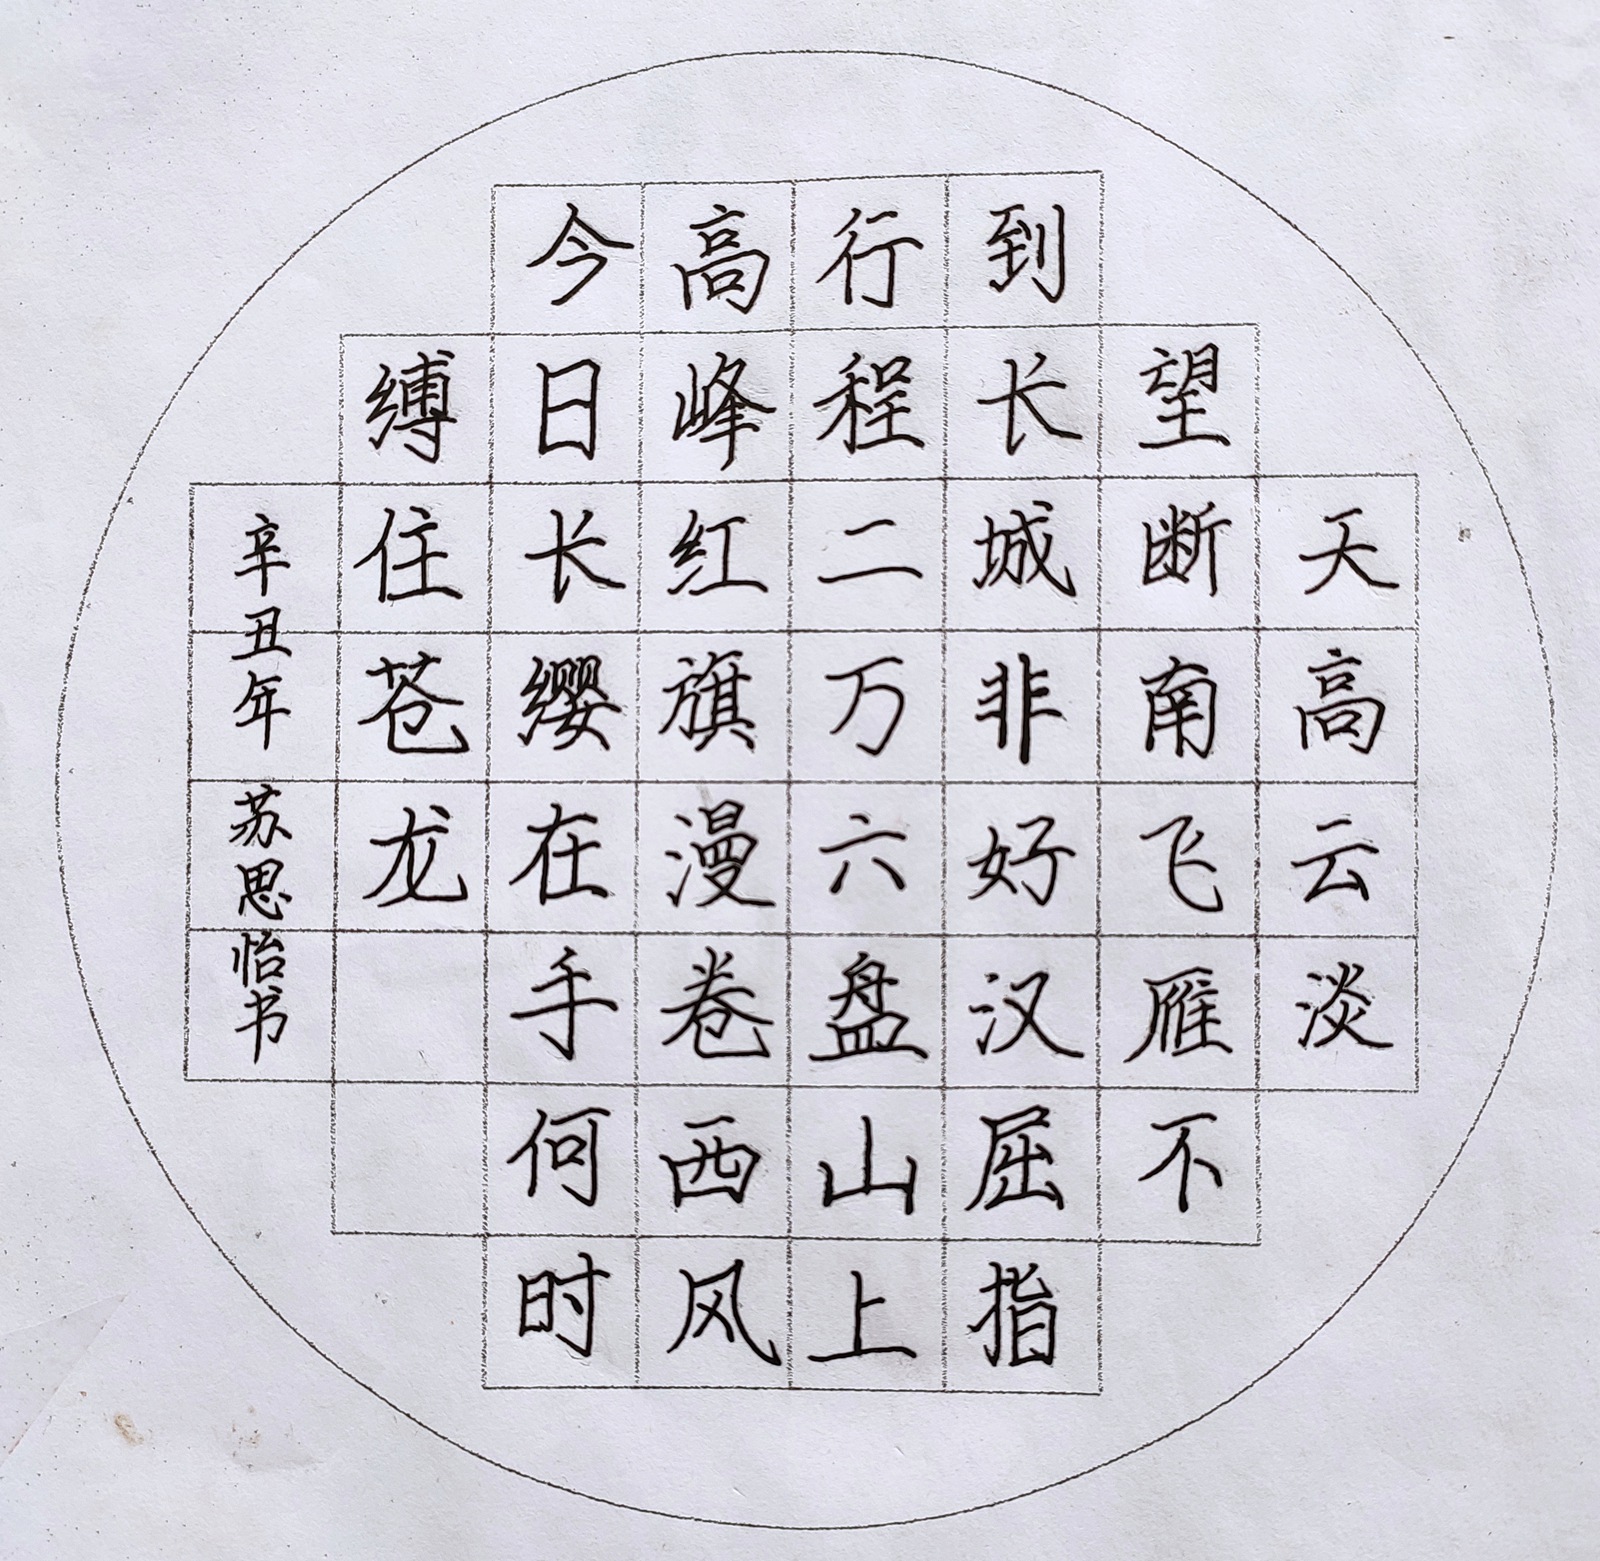 天高云淡
望断南飞雁不
到长城非好汉屈指
行程二万六盘山上
高峰红旗漫卷西风
今日长缨在手何时
缚住苍龙
辛丑年 苏思怡书